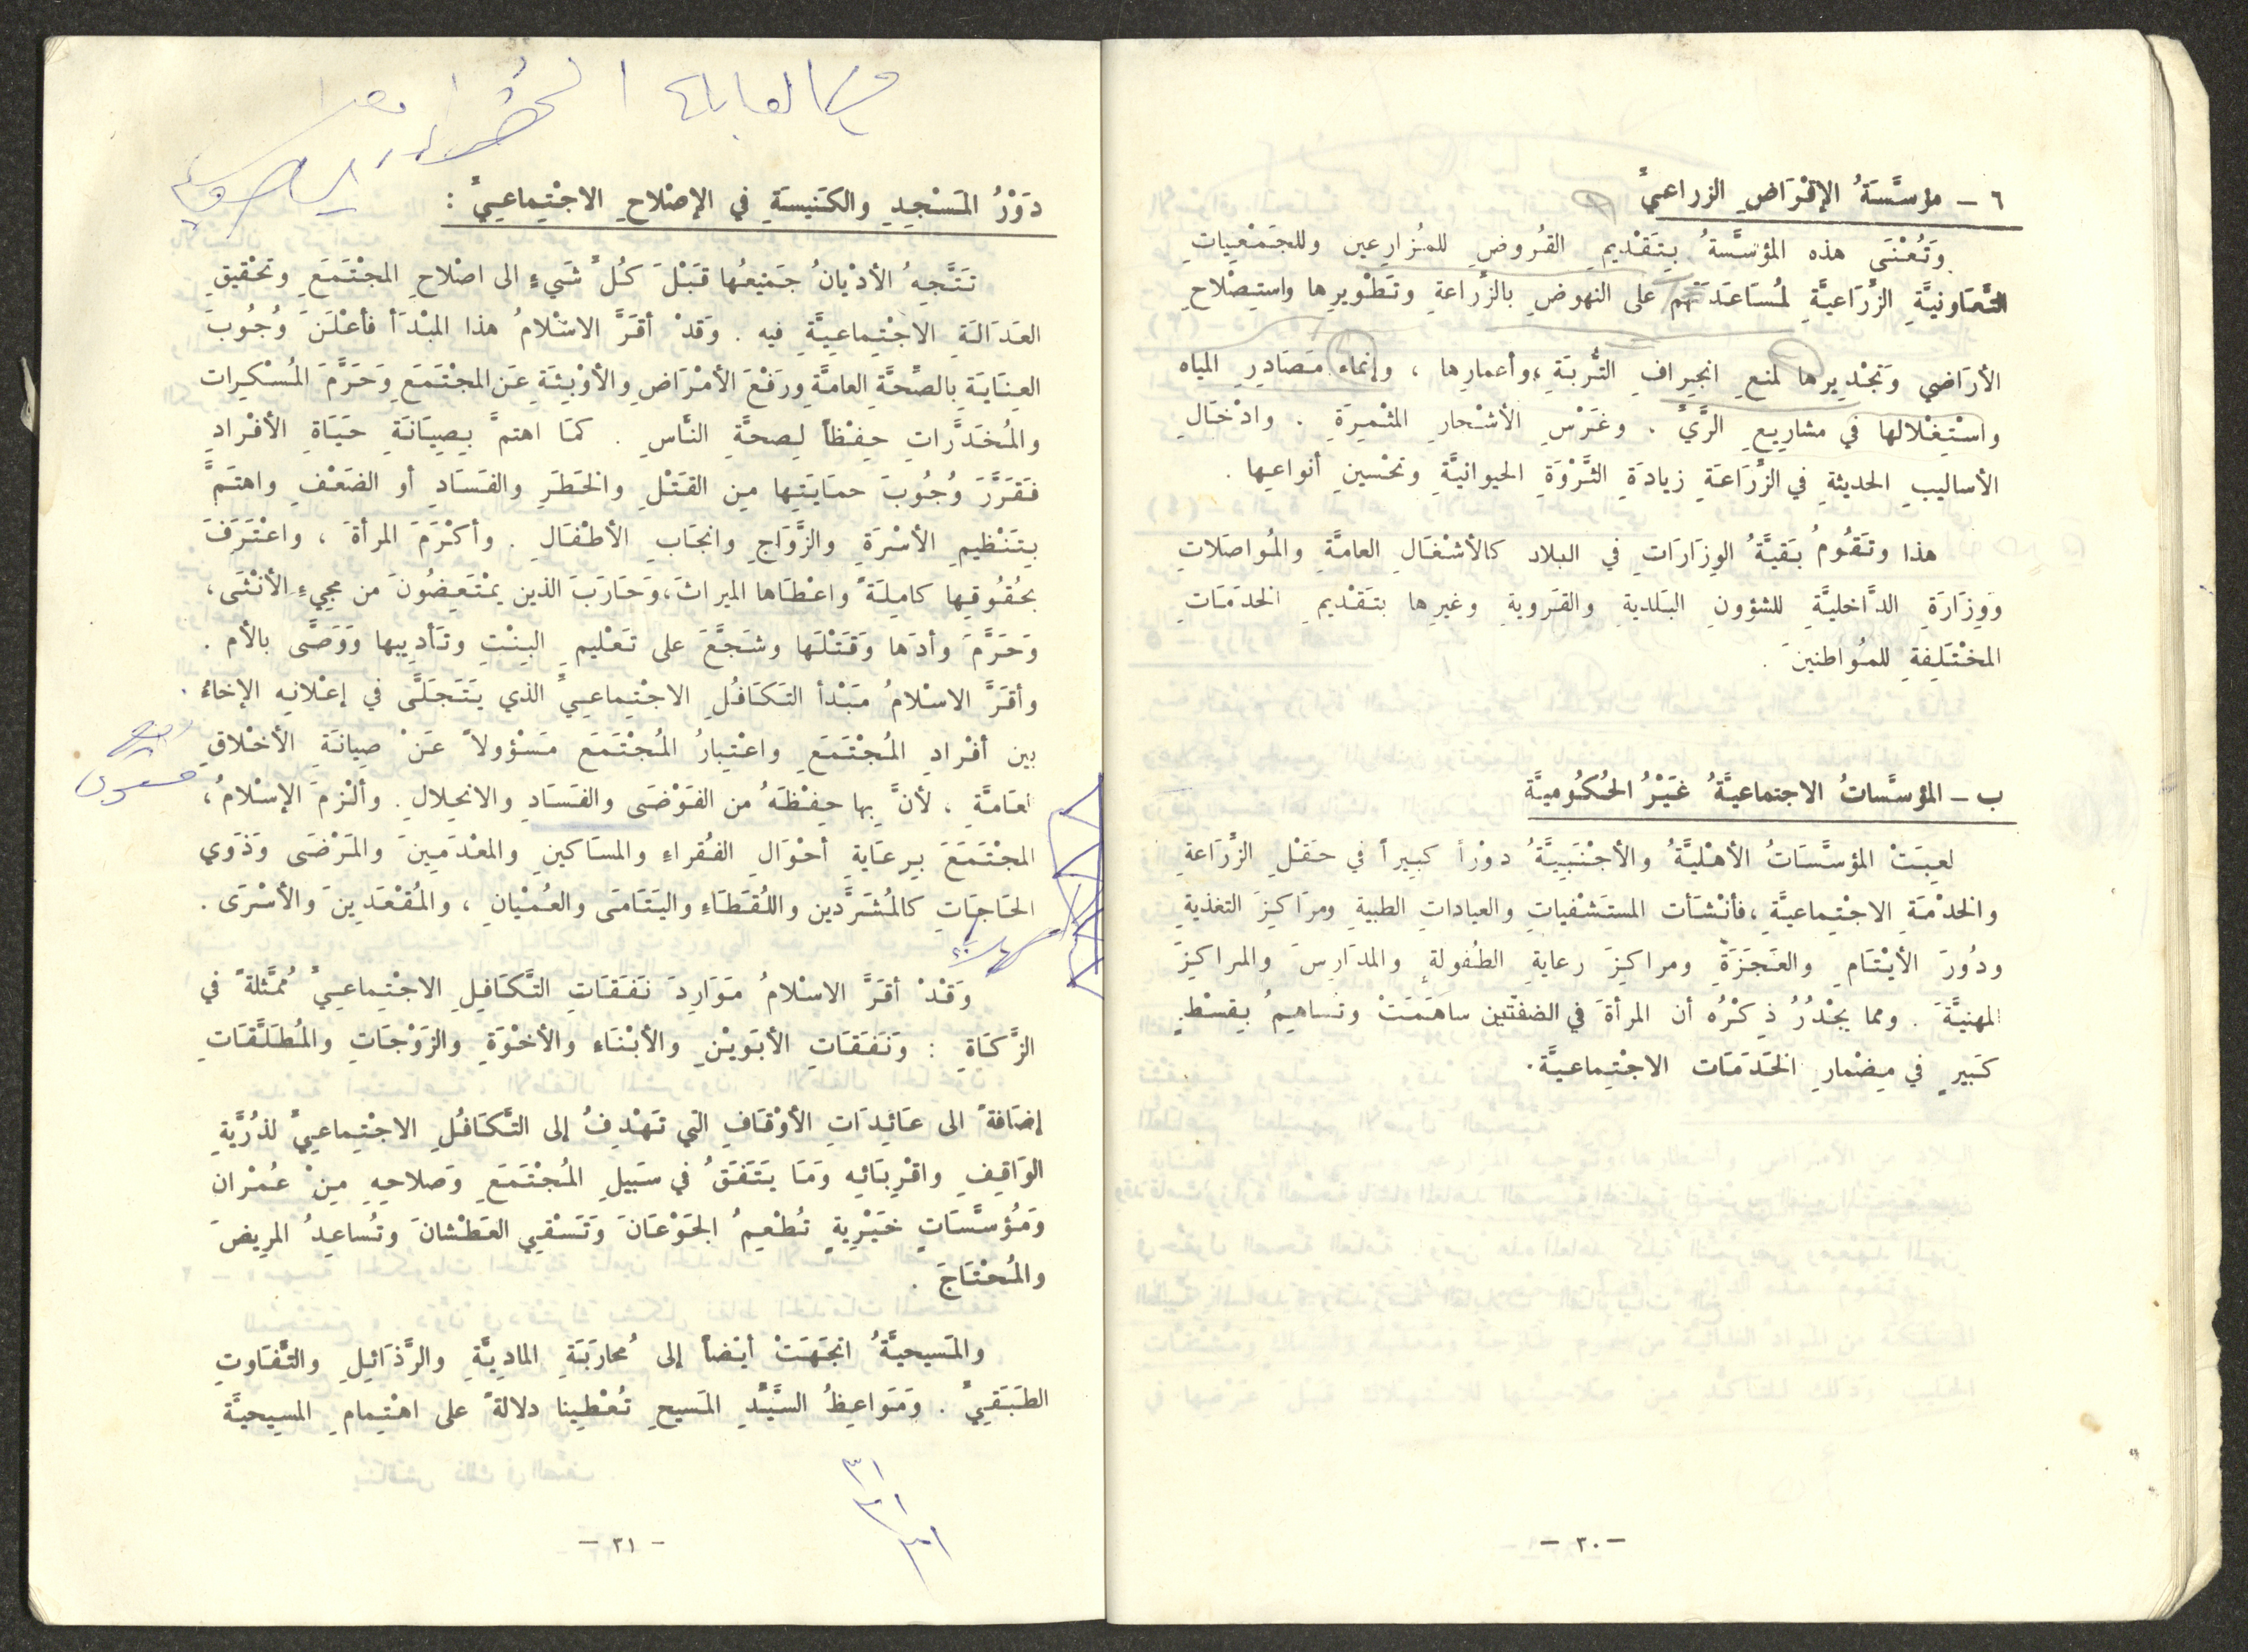 ٦ – مؤسَّسَةُ الإقْرَاضِ الزراعيِّ
وَتُعْنَى هذه المؤسَّسةُ بِتَقْديمِ القُروضِ للمُزارِعين وللجَمْعِياتِ
التَّعَاونيَّةِ الزِّرَاعيَّةِ لمُسَاعَدَتَهُم على النهوضِ بالزِّراعةِ وتَطْويرِها واستِصْلاحِ
الأرَاضي وَتَجْدِيرها لمنعِ انجِرافِ التُّربَةِ ، وأعمارِها ، وإنماءِ مَصَادِرِ المياه
واسْتِغْلالها في مشارِيعِ الرَّيِّ . وغَرْسِ الأشْجارِ المثْمِرَةِ . وادْخَالِ
الأساليبِ الحديثةِ في الزِّرَاعَةِ زيادَةِ الثَّرْوَةِ الحيوانيَّةِ وتحْسينِ أنواعِها .
هذا وتَقُومُ بَقيَّةُ الوِزَارَاتِ في البلاد كالأشْغَالِ العامَّةِ والمُواصَلاتِ
وَوِزَارَةِ الدَّاخليَّةِ للشؤونِ البَلديةِ والقَرويةِ وغيرِها بتَقْديمِ الخدَمَاتِ
المخْتَلِفةِ للمُوَاطنينَ .
ب – المؤسَّساتُ الاجتماعيَّةُ غَيْرُ الحُكُوميَّة
لعِبَتْ المؤسَّسَاتُ الأهْليَّةُ والأجْنَبِيَّةُ دوْراً كبيراً في حَقْلِ الزِّرَاعةِ
والخدْمَةِ الاجْتِماعيَّةِ ، فأنْشَأت المستَشْفياتِ والعياداتِ الطبيةِ ومرَاكِزَ التغذيةِ
ودُورَ الأيْتَامِ والعَجَزَةِ ومراكِزَ رعايةِ الطُفولةِ والمدَارِسَ والمراكِزَ
المهنيَّةَ . ومما يجْدُرُ ذِكْرُه أن المرأةَ في الضفتْين ساهَمَتْ وتُساهِمُ بِقِسْطٍ
كَبيرٍ في مِضْمارِ الخَدَمَات الاجْتِماعيَّة .
– ٣٠ –
دَوْرُ المَسْجِدِ والكَنيسَةِ في الإصْلاحِ الاجْتِماعيِّ :
تَتَّجِهُ الأدْيانُ جَميْعُها قَبْلَ كُلِّ شَيءٍ الى اصْلاحِ المجْتَمَعِ وتحْقيقِ
العَدَالَةِ الاجْتِماعِيَّةِ فيه . وَقدْ أقَرَّ الاسْلامُ هذا المبْدَأ فأعْلَنَ وُجُوبَ
العِنَايَةِ بِالصِّحَّةِ العامَّةِ ورَفْعَ الأمْرَاضِ والأوْبِئَةِ عَنِ المجْتَمَعِ وَحَرَّمَ المُسْكِرات
والمُخَدَّراتِ حِفْظاً لِصحَّةِ النَّاسِ . كمَا اهتمَّ بِصِيَانَةِ حَيَاةِ الأفْرادِ
فَقَرَّرَ وُجُوبَ حمَايَتِها مِن القَتْلِ والخَطَرِ والفَسَادِ أو الضَعْفِ واهتَمَّ
بِتَنْظيمِ الأسْرَةِ والزَّوَاجِ وانجَابِ الأطْفَالِ . وأكْرَمَ المرأةَ ، واعْتَرَفَ
بحُقُوقِها كامِلَةً واعْطَاها الميراثَ ، وَحَارَبَ الذين يمْتَعِضُونَ من مجيءِ الأنْثَى ،
وَحَرَّمَ وأدَها وَقَتْلَها وشَجَّعَ على تَعْليمِ البِنْتِ وتَأديبها وَوَصَّى بالأم .
وأقَرَّ الاسْلامُ مَبْدأ التَكَافُلِ الاجْتِماعِيِّ الذي يَتَجَلَّى في إعْلانِه الإخاءَ
بين أفْرادِ المُجْتَمَعِ واعْتِبارُ المُجْتَمَع مَسْؤولاً عَنْ صِيانَةِ الأخْلاقِ
العَامَّةِ ، لأنَّ بِها حِفْظَهُ من الفَوْضَى والفَسَادِ والانحِلالِ . وألْزمَ الإسْلامُ ،
المجْتَمَعَ بِرِعَايةِ أحْوَالِ الفُقراءِ والمسَاكينِ والمعْدَمِينَ والمَرْضَى وَذَوي
الحَاجَاتِ كالمُشَرَّدين واللُقَطَاءِ واليَتَامَى والعُمْيانِ ، والمُقْعَدِينَ والأسْرَى .
وَقَدْ أقَرَّ الاسْلامُ مَوَارِدَ نَفَقَاتِ التَّكَافِلِ الاجْتِماعِيِّ مُمَثَّلةً في
الزَّكَاةِ : وَنَفَقَاتِ الأبَوَيْنِ والأبْنَاءِ والأخْوَةِ والزَوْجَاتِ والمُطَلَّقَاتِ
إضَافةً الى عَائِدَاتِ الأوْقَافِ التي تَهْدِفُ إلى التَّكَافُلِ الاجْتِماعِيِّ لذُرِّيَّةِ
الوَاقِفِ واقْرِبَائه وَمَا يَتَفَقُ في سَبَيلِ المُجْتَمَعِ وَصَلاحِهِ مِنْ عُمْران
وَمُؤسَّسَاتٍ خَيْرِيةٍ تُطْعِمُ الجَوْعَانَ وَتَسْقِي العَطْشانَ وتُساعِدُ المرِيضَ
والمُحْتَاجَ .
والمَسيحيَّةُ اتجَهَتْ أيْضاً إلى مُحارَبَةِ المادِيَّةِ والرَّذَائِلِ والتَّفَاوتِ
الطَبَقِيِّ . وَمَوَاعِظُ السَّيِّدِ المَسيحِ تُعْطِينا دلالةً على اهْتِمامِ المسيحيَّة
٣١
٣١
٣١
– ٣١ –